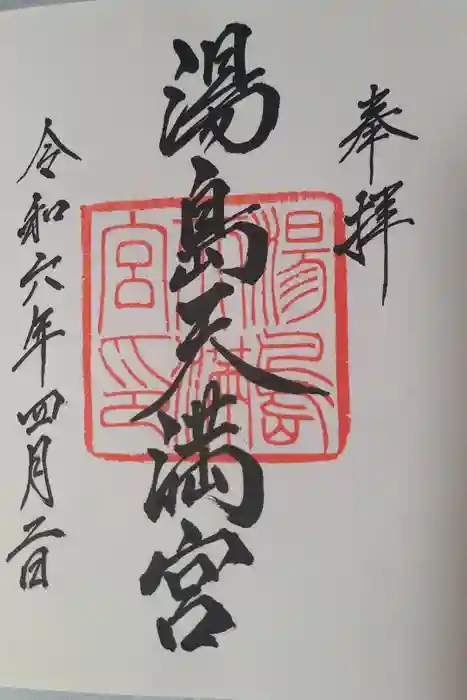 奉拝
湯島天満宮
湯島
天満
宮印
令和六年四月二日